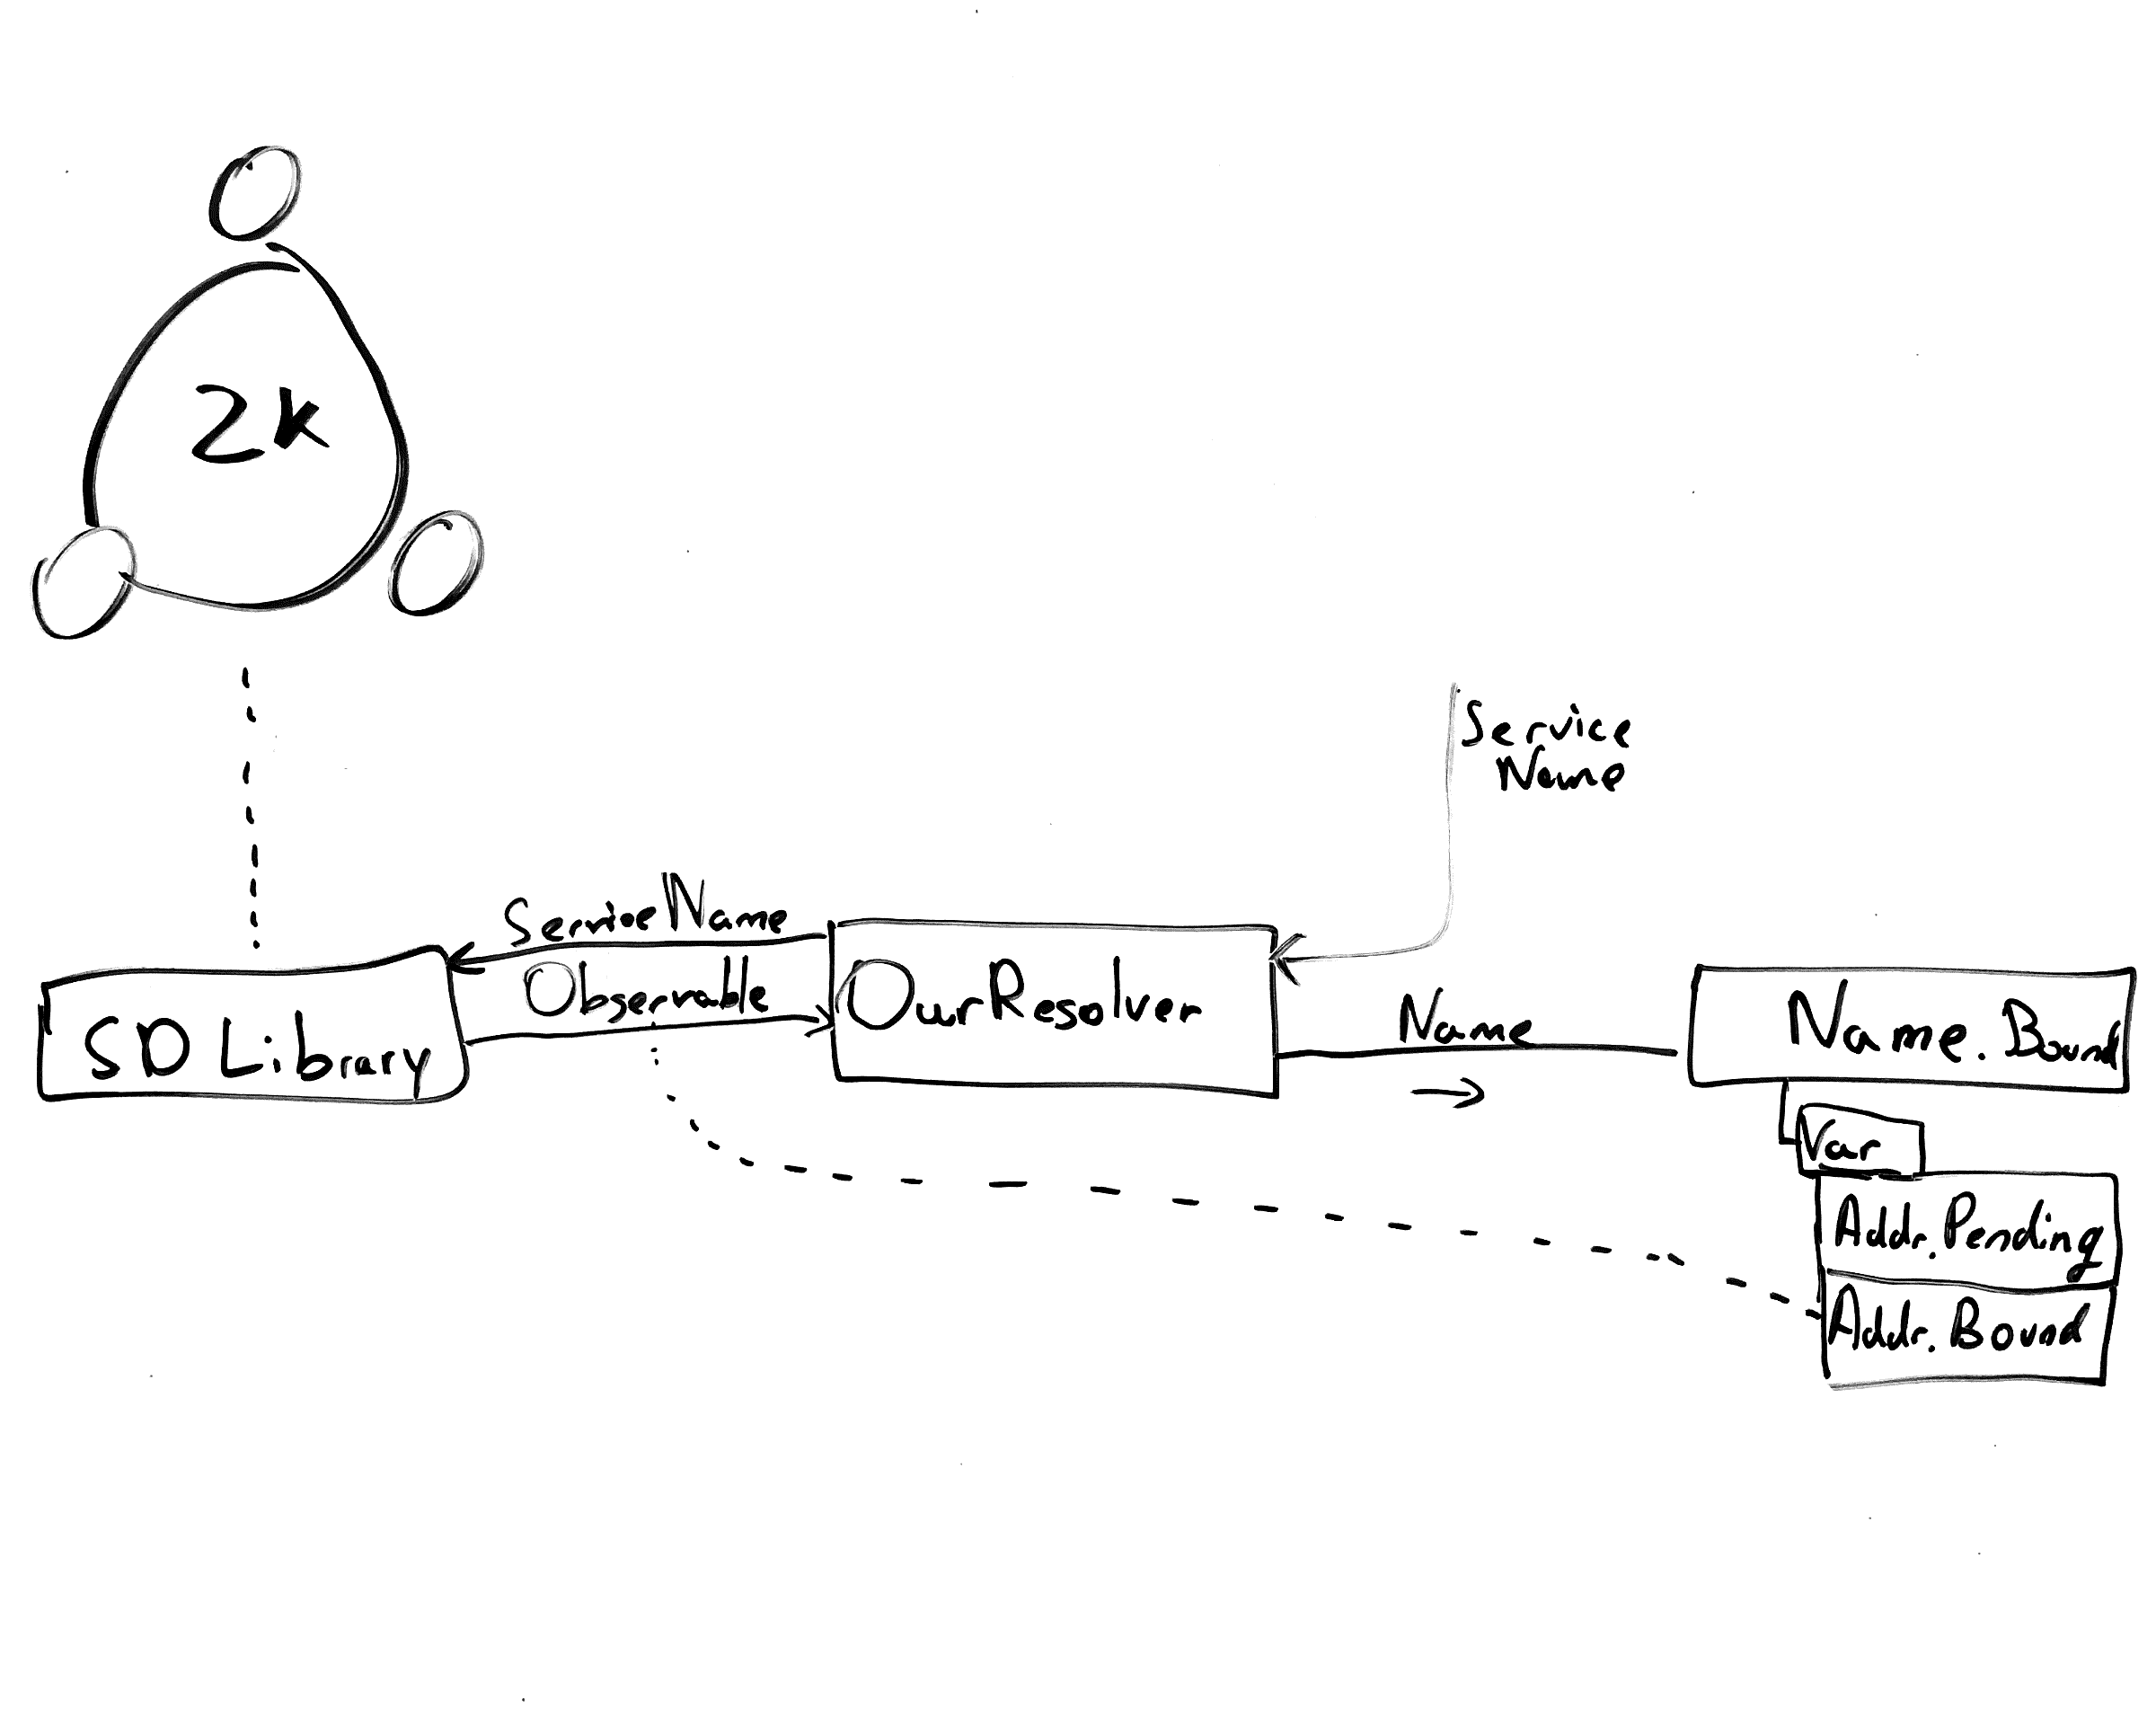 ZK
Service
Name
ServiceName
Observable
SD Library
OurResolver
Name
Name.Bound
Var
Addr.Pending
Addr.Bound